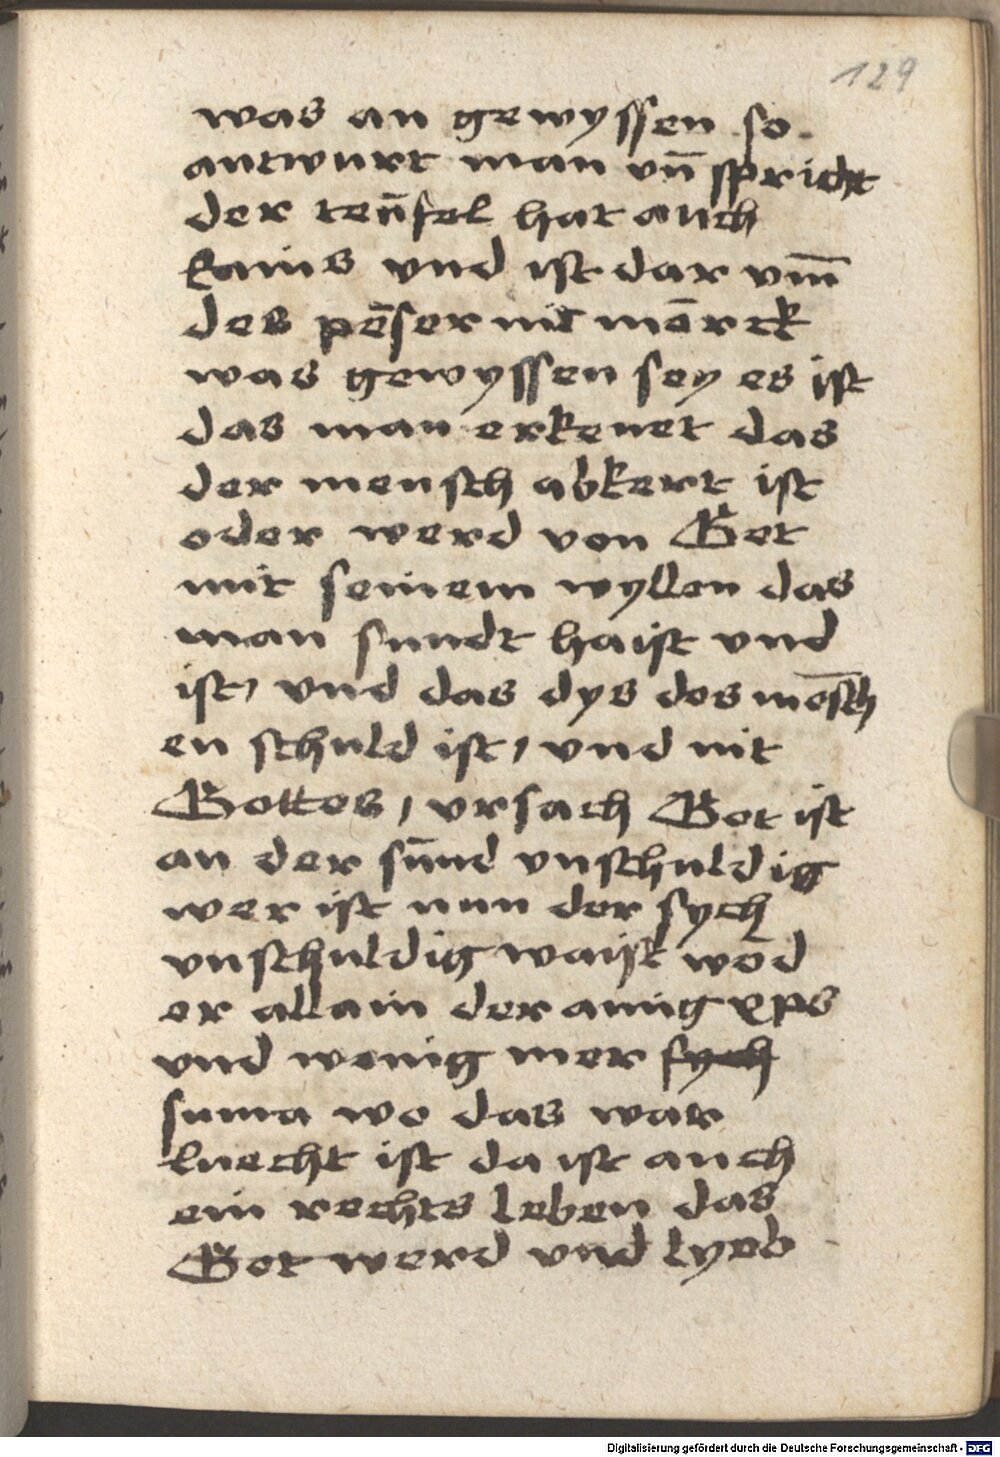 129
was an gewyssen so
antwurt man vn̄ spricht
der teu̅fel hat auch
kains vnd ist dar vm̅
des pe̅ser nit me̅rck
was gewyssen sey es ist
das man erkenet das
der mensch abkert ist
oder werd von Got
mit seinem wyllen das
man sundt haist vnd
ist, vnd das dys des me̅sch
en schuld ist, vnd nit
Gottes, vrsach Got ist
an der su̅nd vnschuldig
wer ist nun der sych
vnschuldig waist wed
er allain der ainig xps
vnd wenig mer sych
suma wo das war
luecht ist da ist auch
ein rechts leben das
Got werd vnd lyeb
Digitalisierung gefördert durch die Deutsche Forschungsgemeinschaft - DFG